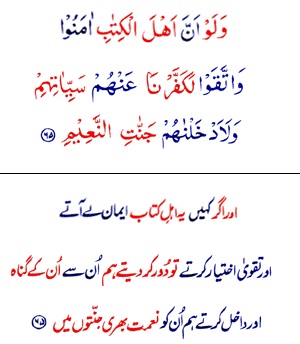 وَلَوْ اَنَّ اَهْلَ الْكِتٰبِ اٰمَنُوْا
وَاتَّقَوْا لَكَفَّرْنَا عَنْهُمْ سَيِّاٰتِهِمْ
وَلَاَدْخَلْنٰهُمْ جَنّٰتِ النَّعِيْمِ ﴿۶۵﴾
اور اگر کہیں یہ اہلِ کتاب ایمان لے آتے
اور تقویٰ اختیار کرتے تو دُور کر دیتے ہم اُن سے اُن کے گناہ
اور داخل کرتے ہم اُن کو نعمت بھری جنّتوں میں ﴿۶۵﴾